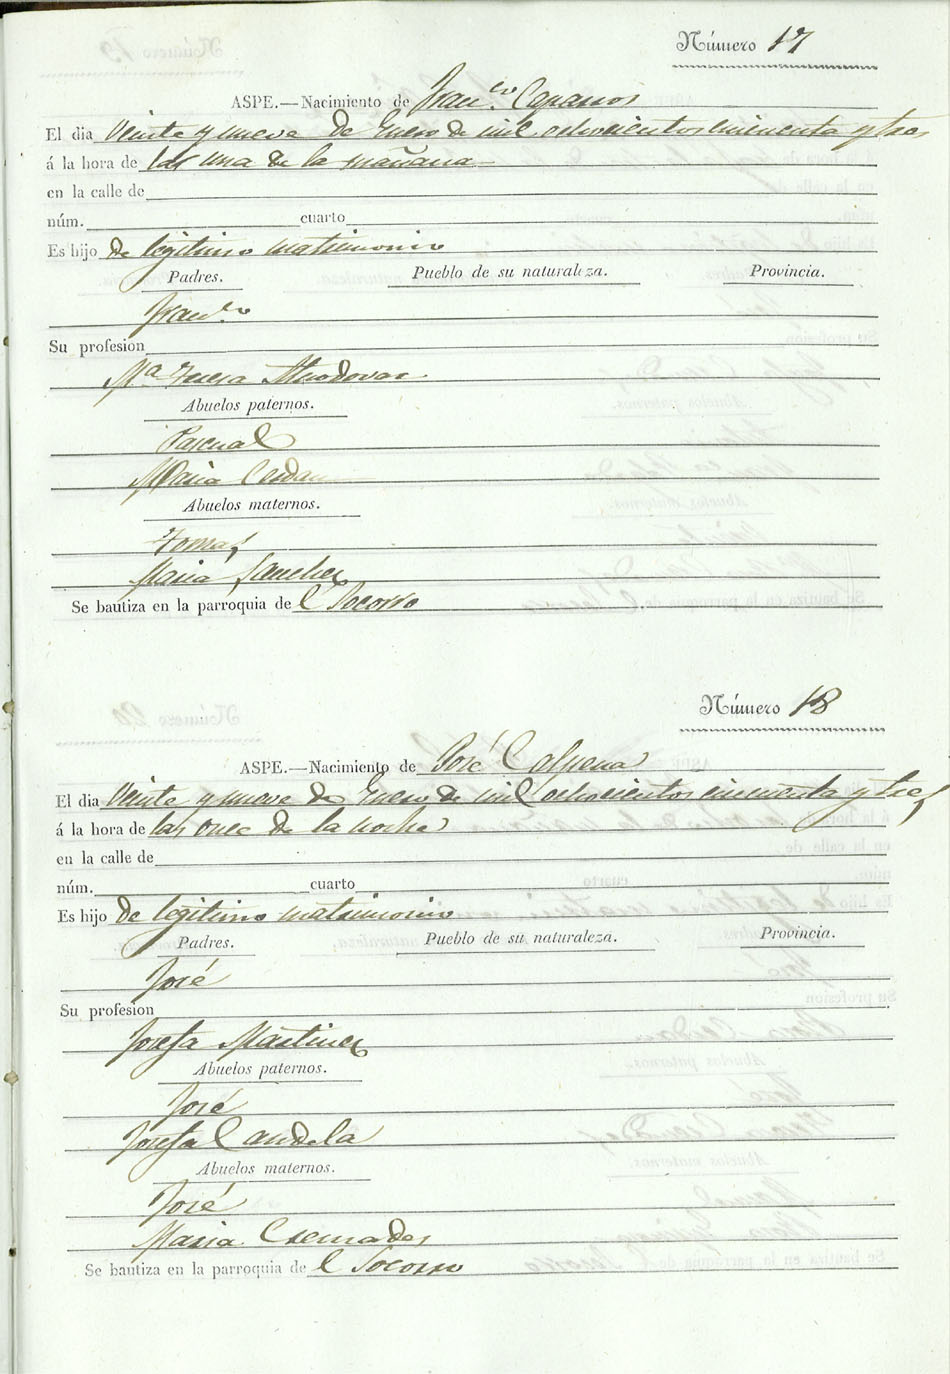 Número 17
ASPE.—Nacimiento de Fran.co Caparros
El dia Veinte y nueve de Enero de mil ochocientos cincuenta y tres
á la hora de las una de la mañana
en la calle de
núm. cuarto
Es hijo de legitimo matrimonio
Padres. Pueblo de su naturaleza. Provincia.
Fran.co
Su profesion
Mª Teresa Almodovar
Abuelos paternos.
Pascual
Maria Cerdan
Abuelos maternos.
Tomas
Maria Sanchez
Se bautiza en la parroquia de el Socorro
Número 18
ASPE.—Nacimiento de José Calpena
El dia Veinte y nueve de Enero de mil ochocientos cincuenta y tres
á la hora de las once de la noche
en la calle de
núm. cuarto
Es hijo de legitimo matrimonio
Padres. Pueblo de su naturaleza. Provincia.
José
Su profesion
Josefa Martinez
Abuelos paternos.
José
Josefa Candela
Abuelos maternos.
José
Maria Cremades
Se bautiza en la parroquia de el Socorro